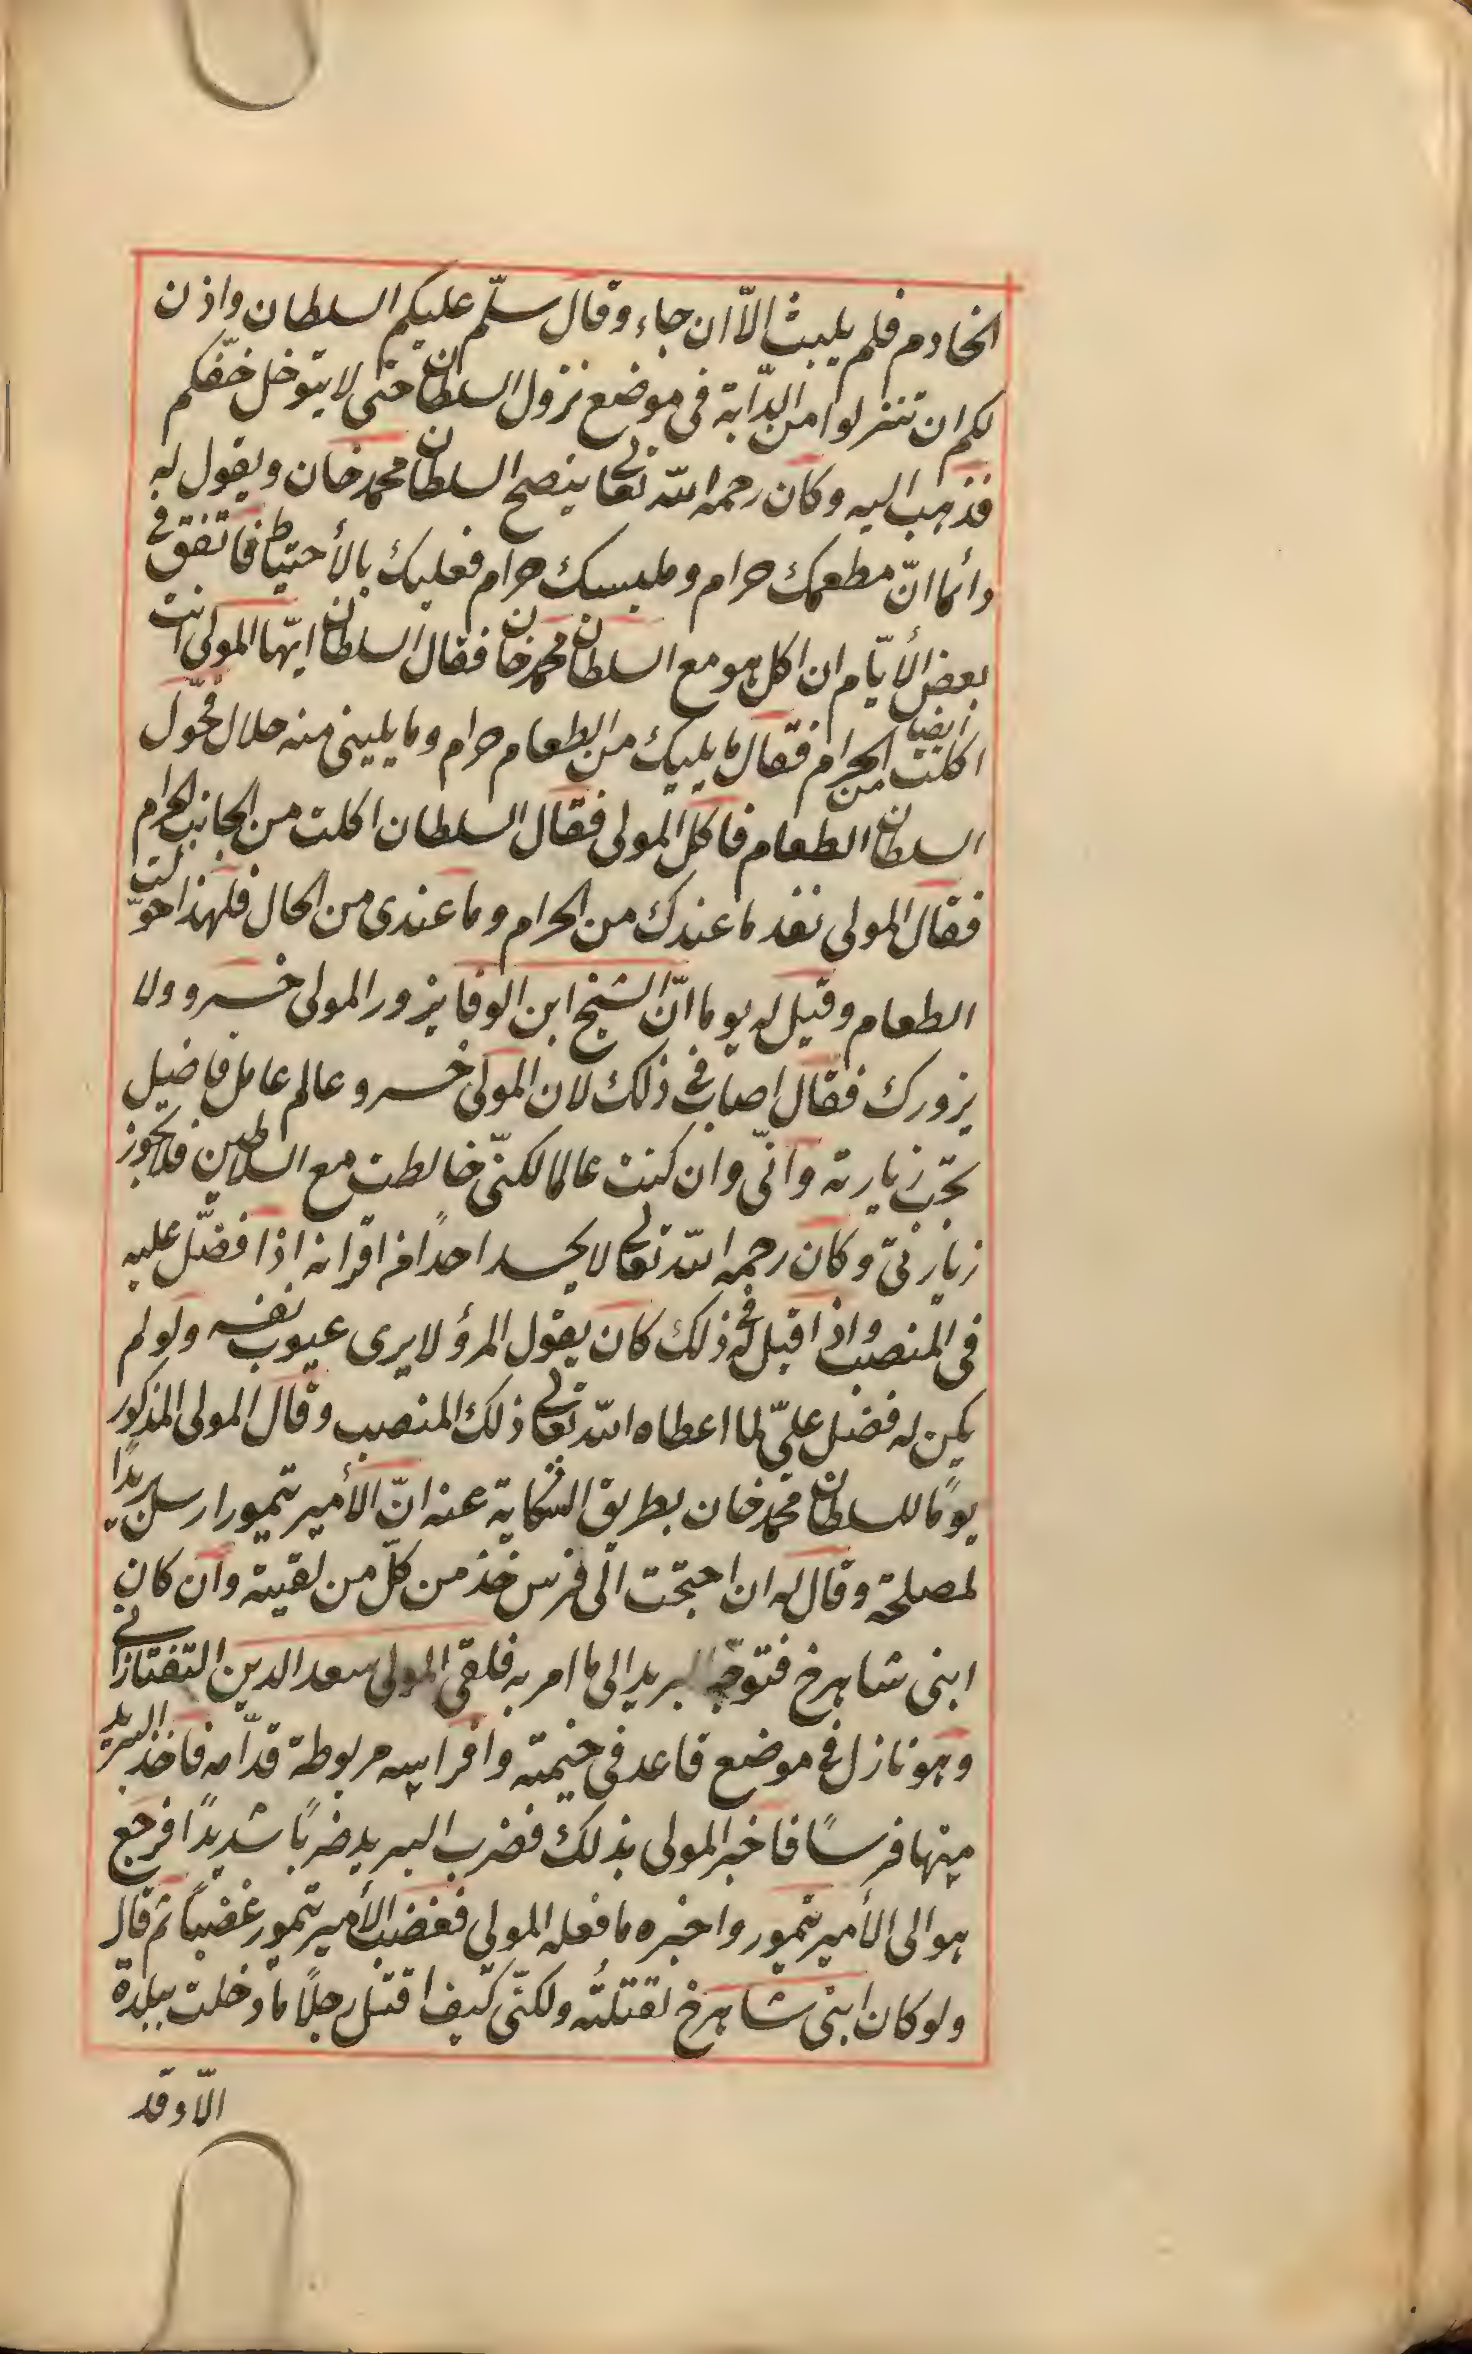 الخادم فلم يلبث الّا ان جاء وقال سلّم عليكم السلطان واذن
لكم ان تنزلوا من الدّابة فى موضع نزول السلطان حتى لا يتوحل خفّكم
فذهب اليه وكان رحمه الله تعالى ينصح السلطان محمد خان ويقول له
دائما انّ مطعمك حرام وملبسك حرام فعليك بالأحتياط فاتفق فى
بعض الأيّام ان اكل هو مع السلطان محمد خان فقال السلطان ايّها المولى انت
ايضا اكلت من الحرام فقال ما يليك من الطعام حرام وما يلينى منه حلال فحوّل
السلطان الطعام فاكل المولى فقال السلطان اكلت من الجانب الحرام
فقال المولى نفد ما عندك من الحرام وما عندى من الحال فلهذا حوّلت
الطعام وقيل له يوما انّ الشيخ ابن الوفا يزور المولى خسرو ولا
يزورك فقال اصاب فى ذلك لان المولى خسرو عالم عامل فاضيل
تجب زيارته وانّى وان كنت عالما لكنّى خالطت مع السلاطين فلا يجوز
زيارتى وكان رحمه الله تعالى لا يحسد احدًا من اقرانه اذا فضّل عليه
فى المنصب واذا قيل له فى ذلك كان يقول المرؤ لا يرى عيوب نفسه ولو لم
يكن له فضل علىّ لما اعطاه الله تعالى ذلك المنصب وقال المولى المذكور
يومًا للسلطان محمد خان بطريق الشكاية عنه انّ الأمير تيمور ارسل بريدًا
لمصلحة وقال له ان احتجت الى فرس خذ من كلّ من لقيته وان كان
ابنى شاهرخ فتوجّه البريد الى ما امر به فلقى المولى سعد الدين التفتازانى
وهو نازل فى موضع قاعد فى خيمته وافراسه مربوطة قدّامه فاخذ البريد
منها فرسًا فاخبر المولى بذلك فضرب البريد ضربًا شديدًا فرجع
هو الى الأمير تيمور واخبره ما فعله المولى فغضب الأمير تيمور غضبًا ثم قال
ولو كان ابنى شاهرخ لقتلته ولكنّى كيف اقتل رجلًا ما دخلت ببلدة
الّا وقد